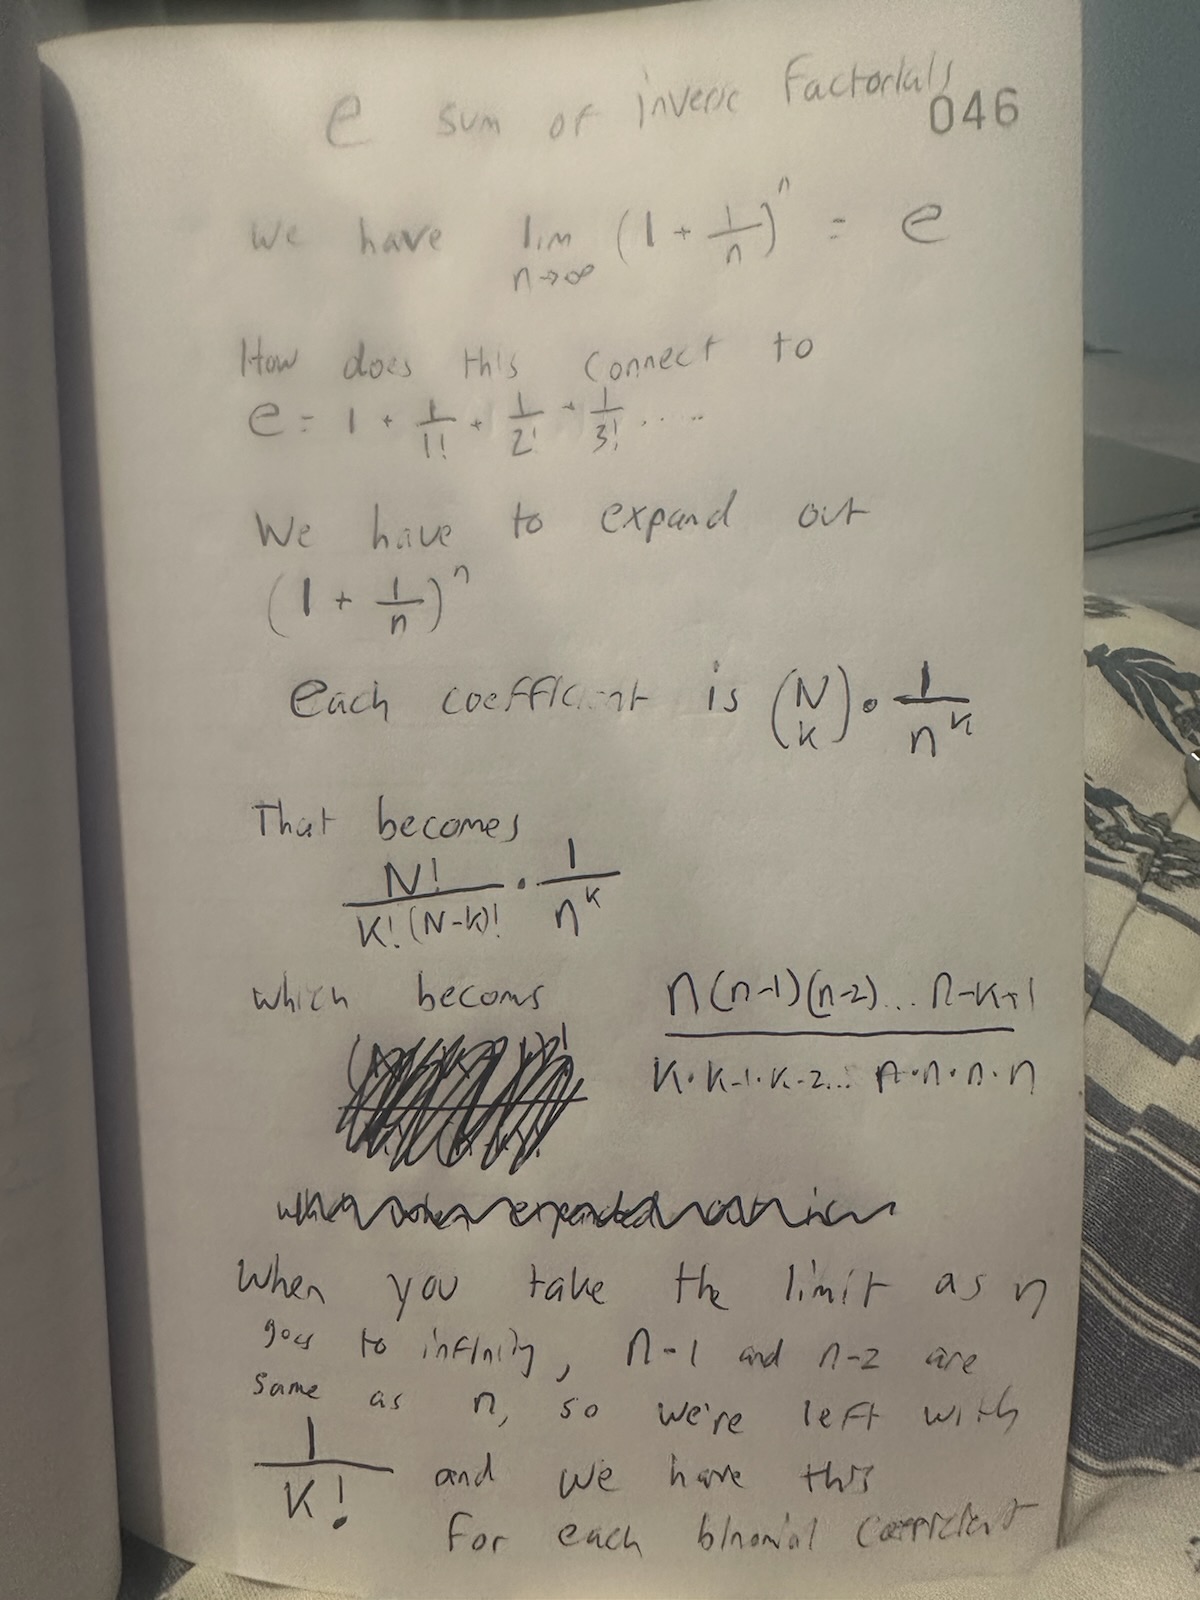 e sum of inverse factorials
046
We have lim n→∞ (1 + 1/n)^n = e
How does this connect to
e = 1 + 1/1! + 1/2! + 1/3! .....
We have to expand out
(1 + 1/n)^n
each coefficient is (N K) • 1/n^k
That becomes
N!/K!(N-k)! • 1/n^k
which becoms n(n-1)(n-2)... n-k+1 / K•K-1•K-2... n•n•n•n
When you take the limit as n
goes to infinity, n-1 and n-2 are
same as n, so we're left with
1/K! and we have this
for each binomial coefficient